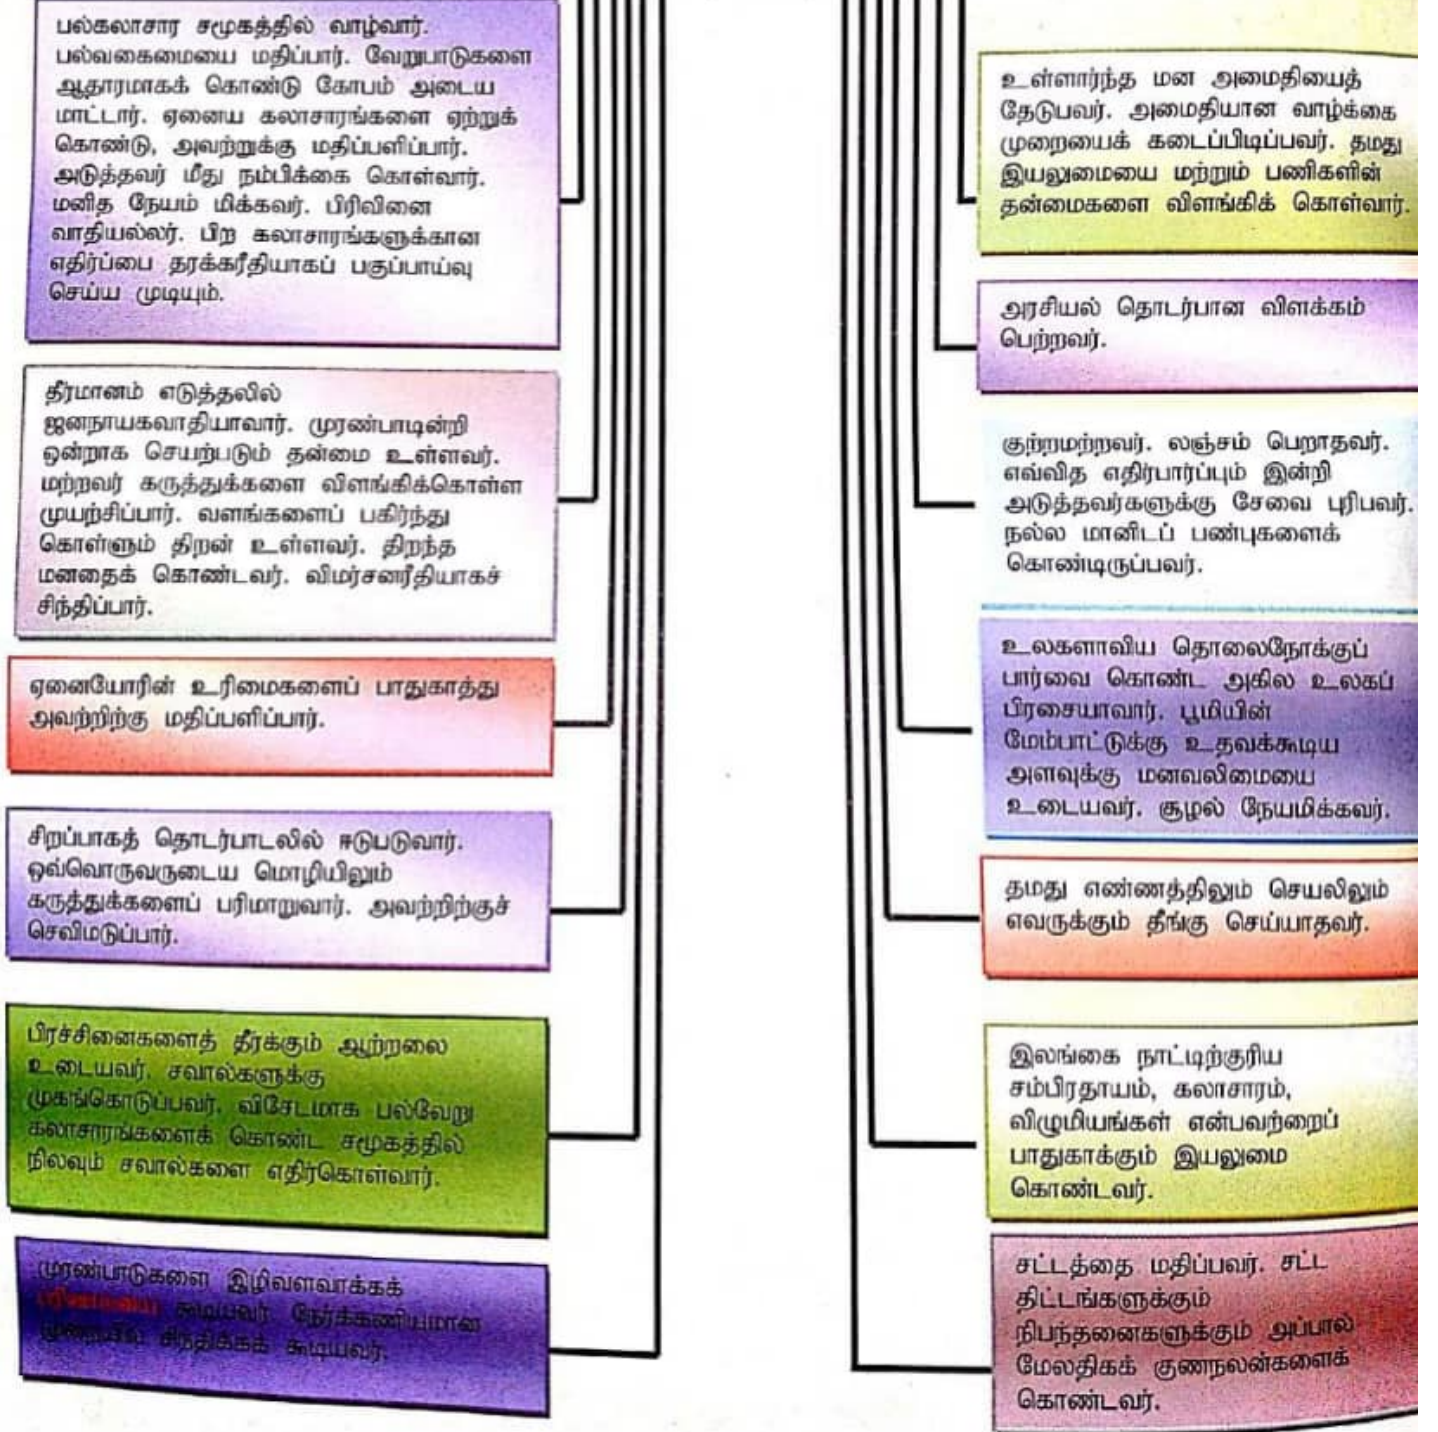 பல்கலாசார சமூகத்தில் வாழ்வார்.
பல்வகைமையை மதிப்பார். வேறுபாடுகளை
ஆதாரமாகக் கொண்டு கோபம் அடைய
மாட்டார். ஏனைய கலாசாரங்களை ஏற்றுக்
கொண்டு, அவற்றுக்கு மதிப்பளிப்பார்.
அடுத்தவர் மீது நம்பிக்கை கொள்வார்.
மனித நேயம் மிக்கவர். பிரிவினை
வாதியல்லர். பிற கலாசாரங்களுக்கான
எதிர்ப்பை தரக்கரீதியாகப் பகுப்பாய்வு
செய்ய முடியும்.
தீர்மானம் எடுத்தலில்
ஜனநாயகவாதியாவார். முரண்பாடின்றி
ஒன்றாக செயற்படும் தன்மை உள்ளவர்.
மற்றவர் கருத்துக்களை விளங்கிக்கொள்ள
முயற்சிப்பார். வளங்களைப் பகிர்ந்து
கொள்ளும் திறன் உள்ளவர். திறந்த
மனதைக் கொண்டவர். விமர்சனரீதியாகச்
சிந்திப்பார்.
ஏனையோரின் உரிமைகளைப் பாதுகாத்து
அவற்றிற்கு மதிப்பளிப்பார்.
சிறப்பாகத் தொடர்பாடலில் ஈடுபடுவார்.
ஒவ்வொருவருடைய மொழியிலும்
கருத்துக்களைப் பரிமாறுவார். அவற்றிற்குச்
செவிமடுப்பார்.
பிரச்சினைகளைத் தீர்க்கும் ஆற்றலை
உடையவர். சவால்களுக்கு
முகங்கொடுப்பவர். விசேடமாக பல்வேறு
கலாசாரங்களைக் கொண்ட சமூகத்தில்
நிலவும் சவால்களை எதிர்கொள்வார்.
முரண்பாடுகளை இழிவளவாக்கக்
கூடியவர். நேர்க்கணியமான
முறையில் சிந்திக்கக் கூடியவர்.
உள்ளார்ந்த மன அமைதியைத்
தேடுபவர். அமைதியான வாழ்க்கை
முறையைக் கடைப்பிடிப்பவர். தமது
இயலுமையை மற்றும் பணிகளின்
தன்மைகளை விளங்கிக் கொள்வார்.
அரசியல் தொடர்பான விளக்கம்
பெற்றவர்.
குற்றமற்றவர். லஞ்சம் பெறாதவர்.
எவ்வித எதிர்பார்ப்பும் இன்றி
அடுத்தவர்களுக்கு சேவை புரிபவர்.
நல்ல மானிடப் பண்புகளைக்
கொண்டிருப்பவர்.
உலகளாவிய தொலைநோக்குப்
பார்வை கொண்ட அகில உலகப்
பிரசையாவார். பூமியின்
மேம்பாட்டுக்கு உதவக்கூடிய
அளவுக்கு மனவலிமையை
உடையவர். சூழல் நேயமிக்கவர்.
தமது எண்ணத்திலும் செயலிலும்
எவருக்கும் தீங்கு செய்யாதவர்.
இலங்கை நாட்டிற்குரிய
சம்பிரதாயம், கலாசாரம்,
விழுமியங்கள் என்பவற்றைப்
பாதுகாக்கும் இயலுமை
கொண்டவர்.
சட்டத்தை மதிப்பவர். சட்ட
திட்டங்களுக்கும்
நிபந்தனைகளுக்கும் அப்பால்
மேலதிகக் குணநலன்களைக்
கொண்டவர்.